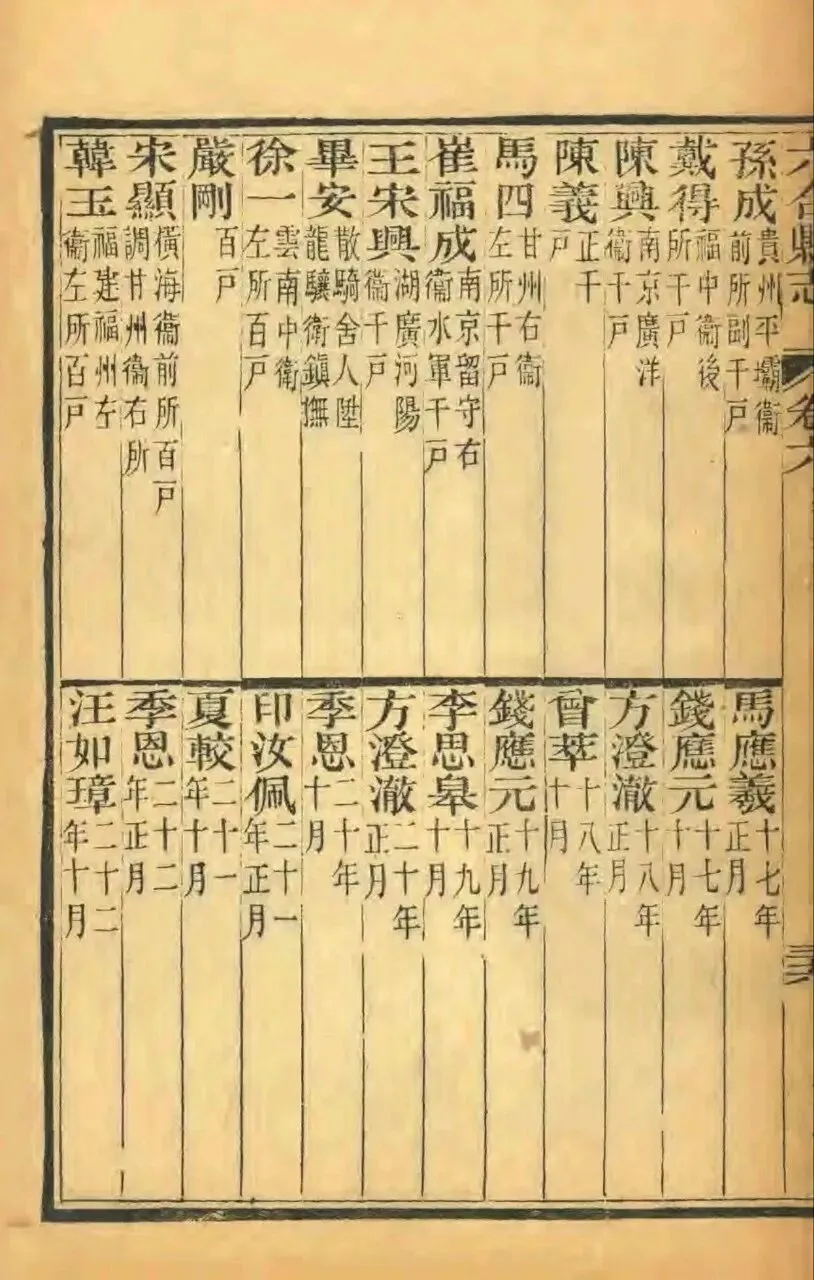 六合縣志
卷六
孫成 貴州平壩衞前所副千戶
戴得 福中衞後所千戶
陳興 南京廣洋衞千戶
陳義 正千戶
馬四 甘州右衞左所千戶
崔福成 南京留守右衞水軍千戶
王宋興 湖廣河陽衞千戶
畢安 散騎舍人陞龍驤衞鎮撫
徐一 雲南中衞左所百戶
嚴剛 百戶
宋顯 橫海衞前所百戶調甘州衞右所
韓玉 福建福州左衞左所百戶
馬應羲 十七年正月
錢應元 十七年十月
方澄澈 十八年正月
曾萃 十八年十月
錢應元 十九年正月
李思皋 十九年十月
方澄澈 二十年正月
季恩 二十年十月
印汝佩 二十一年正月
夏較 二十一年十月
季恩 二十二年正月
汪如璋 二十二年十月